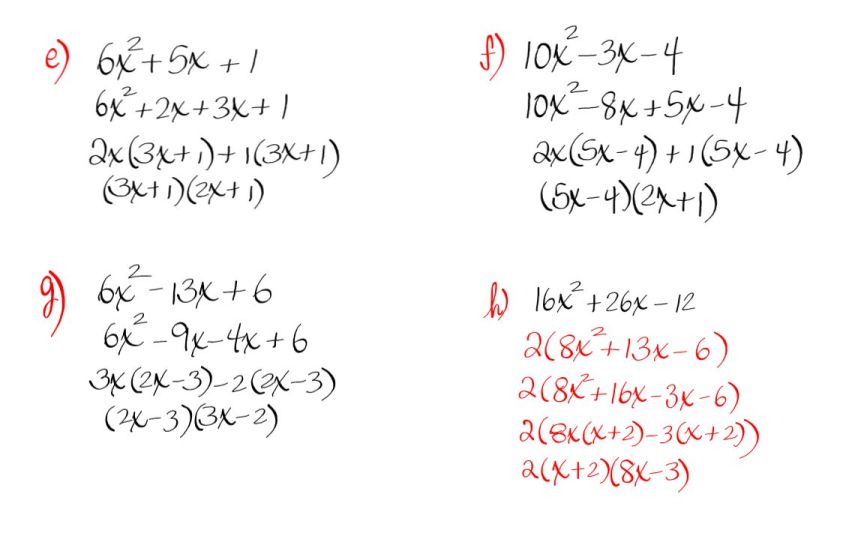 e) 6x²+5x+1
6x²+2x+3x+1
2x(3x+1)+1(3x+1)
(3x+1)(2x+1)
f) 10x²-3x-4
10x²-8x+5x-4
2x(5x-4)+1(5x-4)
(5x-4)(2x+1)
g) 6x²-13x+6
6x²-9x-4x+6
3x(2x-3)-2(2x-3)
(2x-3)(3x-2)
h) 16x²+26x-12
2(8x²+13x-6)
2(8x²+16x-3x-6)
2(8x(x+2)-3(x+2))
2(x+2)(8x-3)